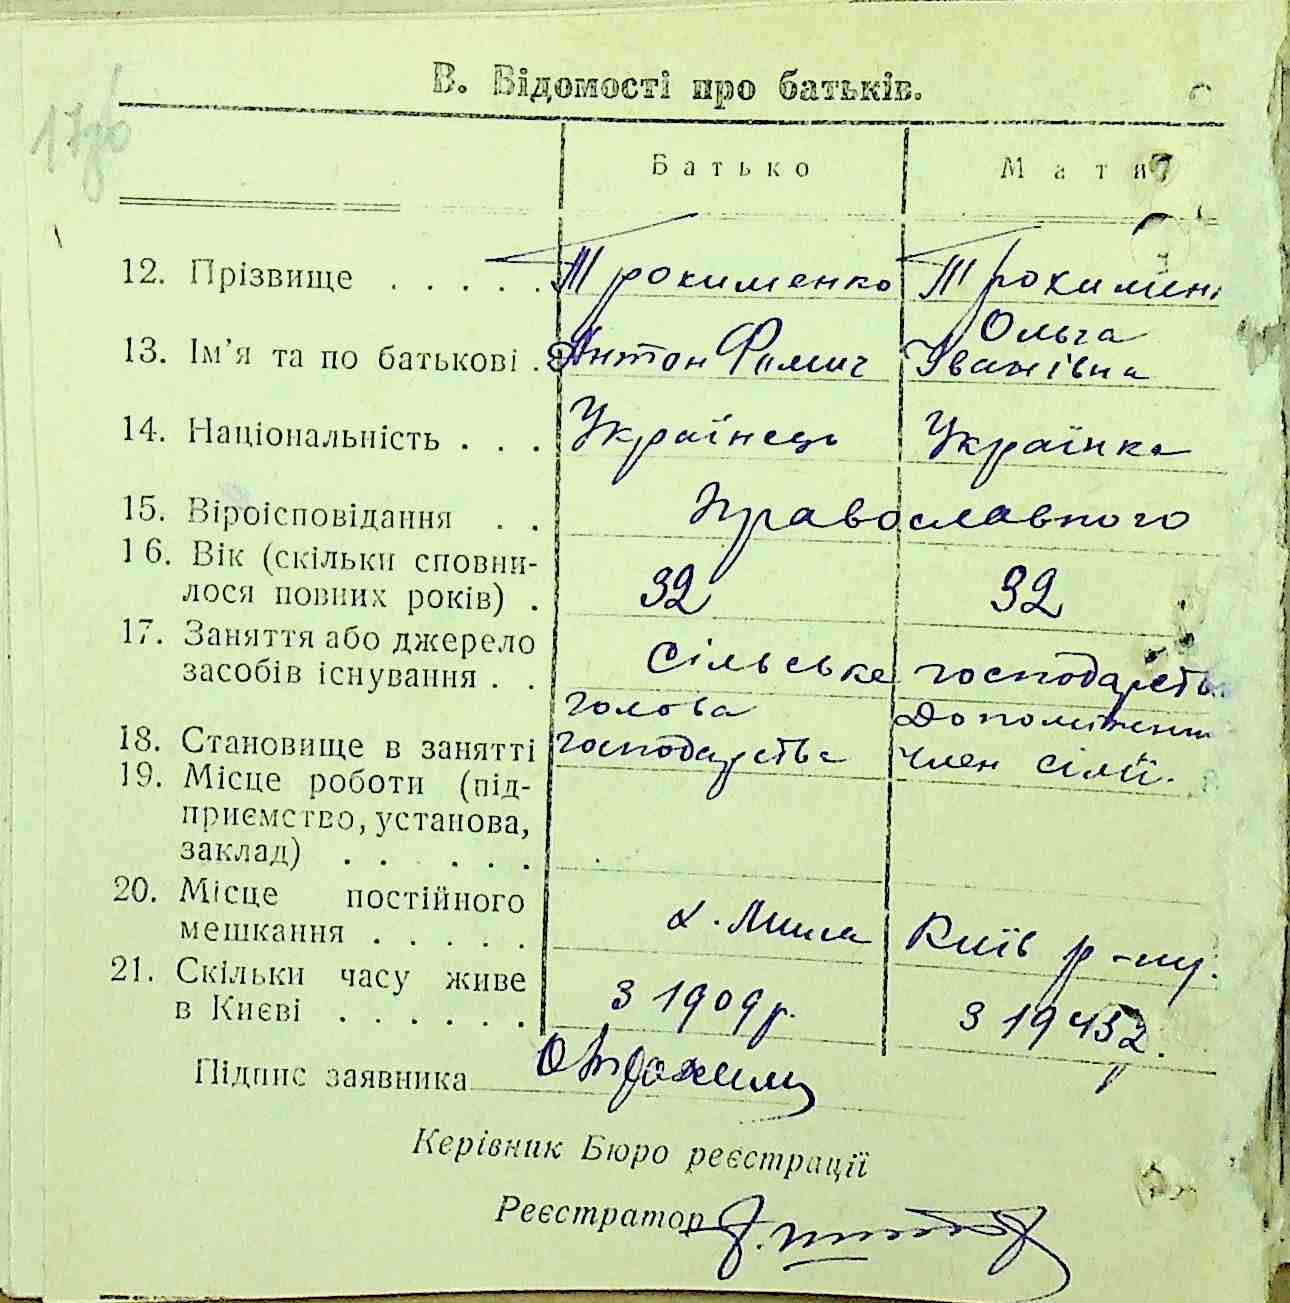 В. Відомості про батьків.
Батько Матя
12. Прізвище . . . . . Трохименко Трохимен
Ольга
13. Ім'я та по батькові . Антон Фомич Іванівна
14. Національність . . . Українець Українка
15. Віроісповідання . . Православного
16. Вік (скільки сповни-
лося повних років) . 32 32
17. Заняття або джерело
засобів існування . . Сільське господарств
голова
18. Становище в занятті господарства член сімї.
19. Місце роботи (під-
приємство, установа,
заклад) . . . . . .
20. Місце постійного
мешкання . . . . . Київ р-ну.
21. Скільки часу живе
в Києві . . . . . . З 1909 р. З 19
Підпис заявника
Керівник Бюро реєстрації
Реєстратор